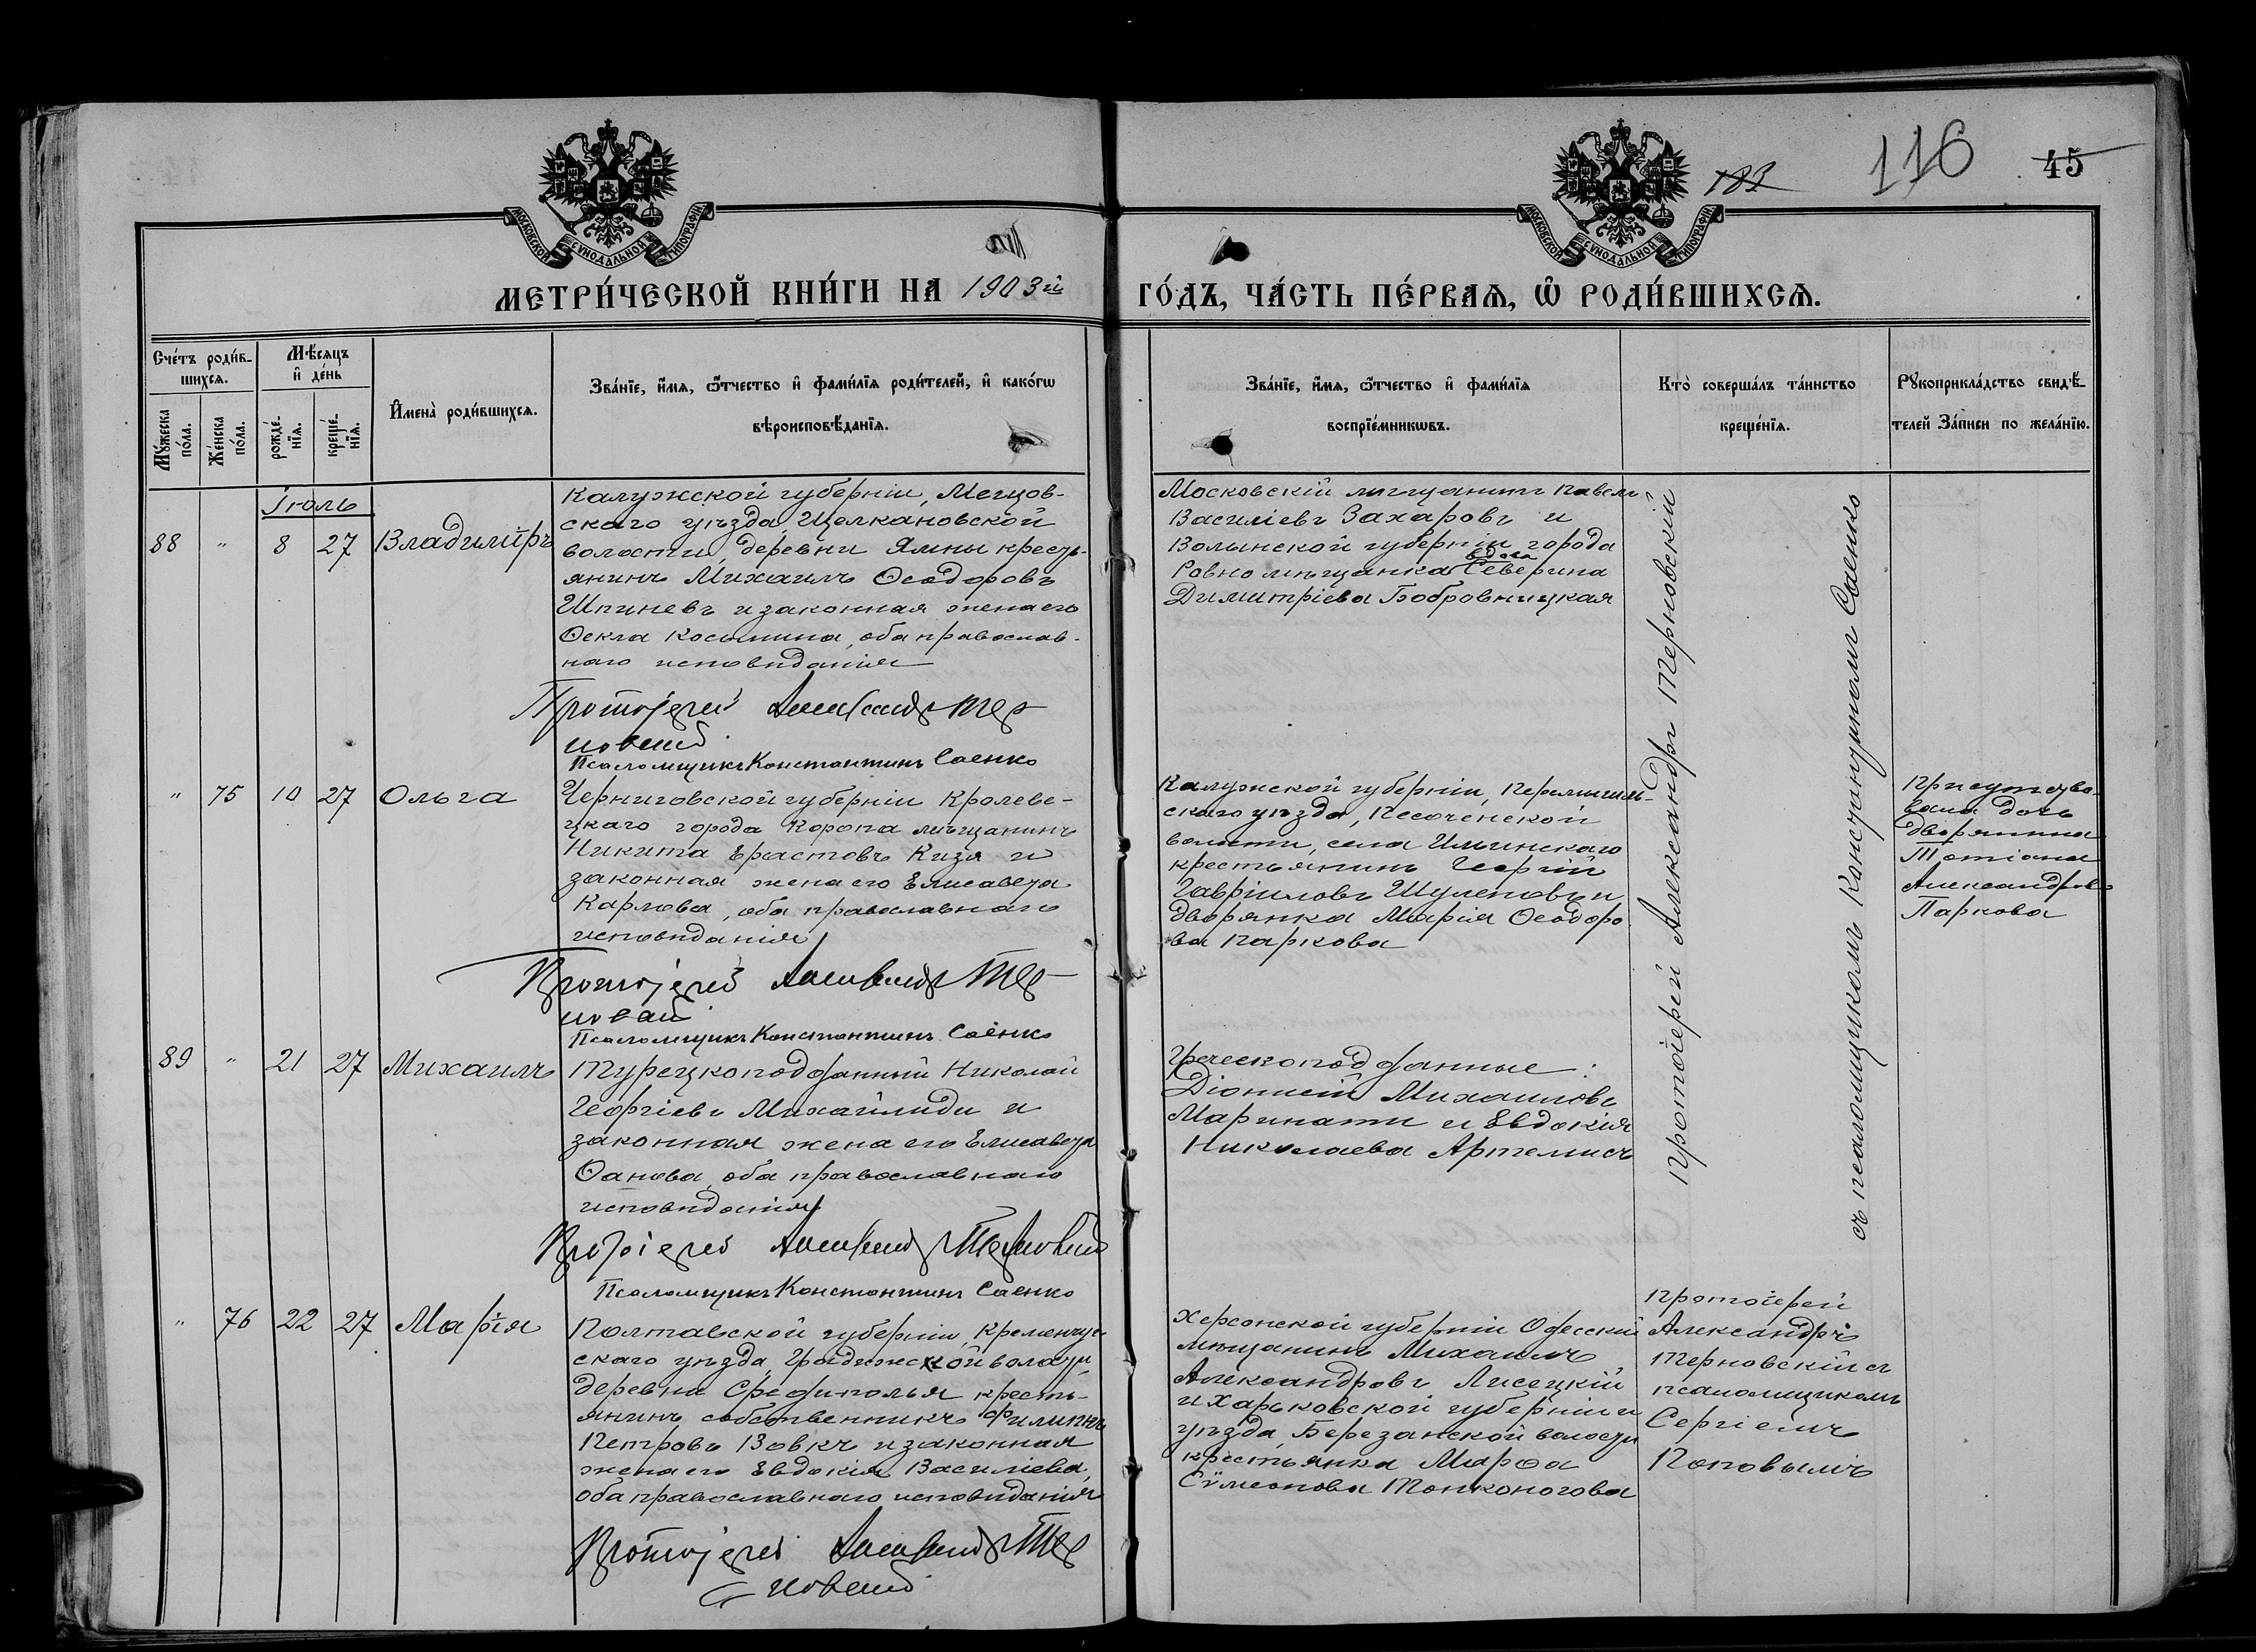 183
116
45
МОСКОВСКОЙ СУНОДАЛЬНОЙ ТИПОГРАФІИ
МОСКОВСКОЙ СУНОДАЛЬНОЙ ТИПОГРАФІИ
МЕТРИ́ЧЕСКОЙ КНИ́ГИ НА 1903й ГО́ДЪ, ЧА́СТЬ ПЕ́РВАЯ, Ѡ РОДИ́ВШИХСЯ.
Сче́тъ роди́в-
шихся.
Мѣ́сяцъ
и де́нь
Мꙋ́жеска
по́ла.
Же́нска
по́ла.
рожде́-
нїя.
креще́-
нїя.
Имена̀ роди́вшихся.
Зва́нїе, и́мя, ѻ́тчество и фами́лїя роди́телей, и како́гѡ
вѣроисповѣ́данїя.
Зва́нїе, и́мя, ѻ́тчество и фами́лїя
воспрїе́мникѡвъ.
Кто̀ соверша́лъ та́инство
креще́нїя.
Рꙋкоприкла́дство свидѣ́-
телей За́писи по жела́нїю.
Іюль
88 " 8 27 Владиміръ
Калужской губерніи, Мещов-
скаго уѣзда, Щелкановской
волости, деревни Ямны кресть-
янинъ Михаилъ Ѳеодоровъ
Шпиневъ и законная жена его
Ѳекла Космина, оба православ-
наго исповѣданія
Протоіерей Александръ Тер
новскій
Псаломщикъ Константинъ Саенко
Московскій мѣщанинъ Павелъ
Василіевъ Захаровъ и
Волынской губерніи города
вдова
Ровно мѣщанка Северина
Димитріева Бобровницкая
Протоіерей Александръ Терновскій
съ псаломщикомъ Константиномъ Саенко
" 75 10 27 Ольга
Черниговской губерніи Кролеве-
цкаго города Коропа мѣщанинъ
Никита Ерастовъ Кизя и
законная жена его Елисавета
Карлова, оба православнаго
исповѣданія
Протоіерей Александръ Тер
новскій
Псаломщикъ Константинъ Саенко
Калужской губерніи, Перемышль-
скаго уѣзда, Песоченской
волости, села Ильинскаго
крестьянинъ Георгій
Гавріиловъ Шулеповъ и
дворянка Марія Ѳеодоро
ва Паркова
Присутство-
вала дочь
дворянина
Татіана
Александрова
Паркова
89 " 21 27 Михаилъ
Турецкоподданный Николай
Георгіевъ Михайлиди и
законная жена его Елисавета
Ѳанова, оба православнаго
исповѣданія
Протоіерей Александръ Терновскій
Псаломщикъ Константинъ Саенко
Греческоподданные:
Діонисій Михаиловъ
Маринати и Евдокія
Николаева Артемисъ
" 76 22 27 Марѳа
Полтавской губерніи, Кременчуг-
скаго уѣзда, Градижской волости
деревни Средиполья кресть-
янинъ собственникъ Филиппъ
Петровъ Вовкъ и законная
жена его Евдокія Василіева,
оба православнаго исповѣданія
Протоіерей Александръ Тер
новскій
Херсонской губерніи Одесскій
мѣщанинъ Михаилъ
Александровъ Лисецкій
и Харьковской губерніи и
уѣзда, Березанской волости
крестьянка Марѳа
Сѵмеонова Тонконогова
Протоіерей
Александръ
Терновскій съ
псаломщикомъ
Сергіемъ
Поповымъ